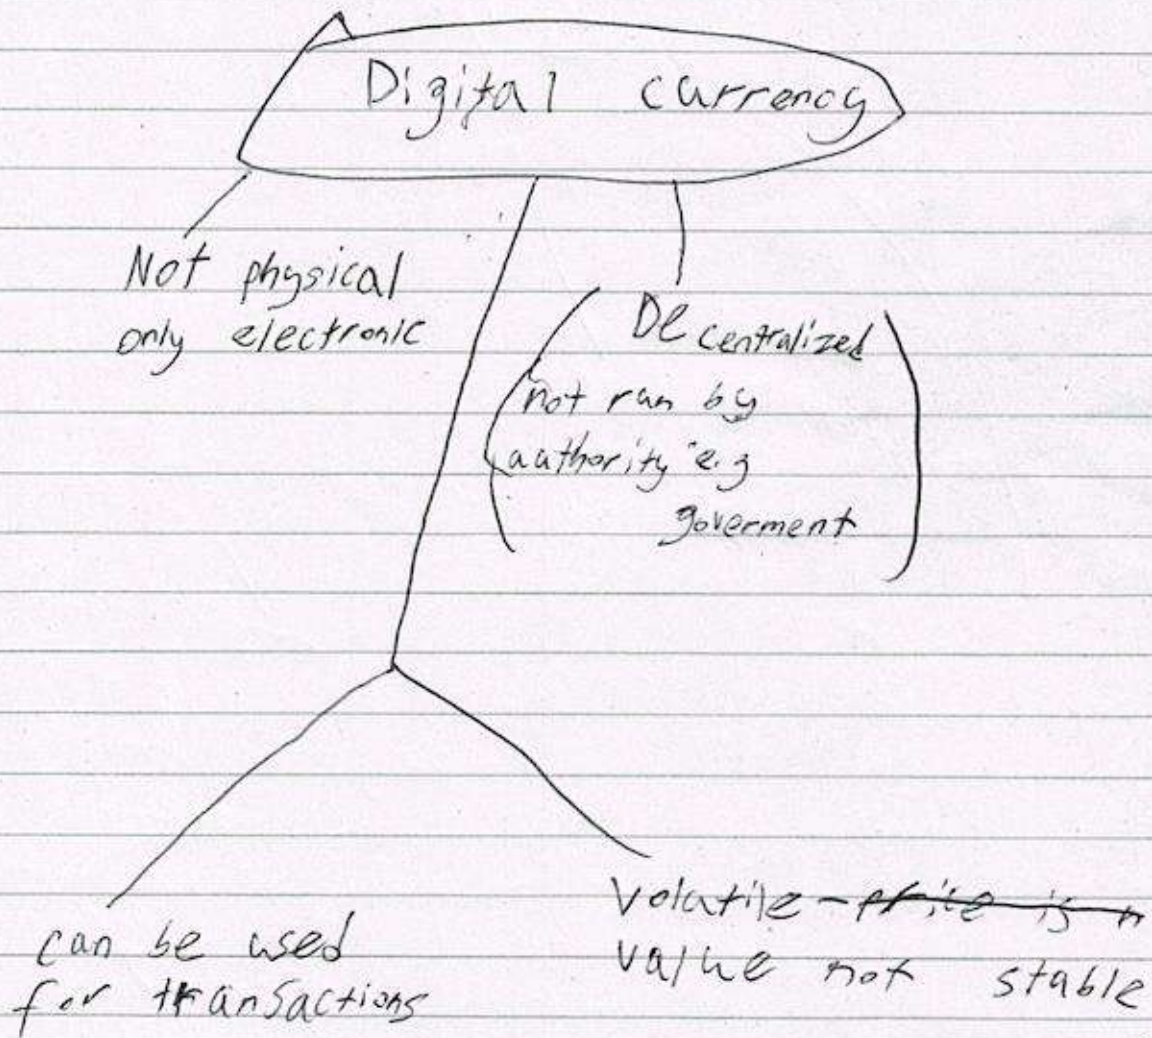 Digital currency
Not physical
only electronic
Decentralized
not ran by
authority e.g
goverment
can be used
for transactions
Volatile - price is n
value not stable